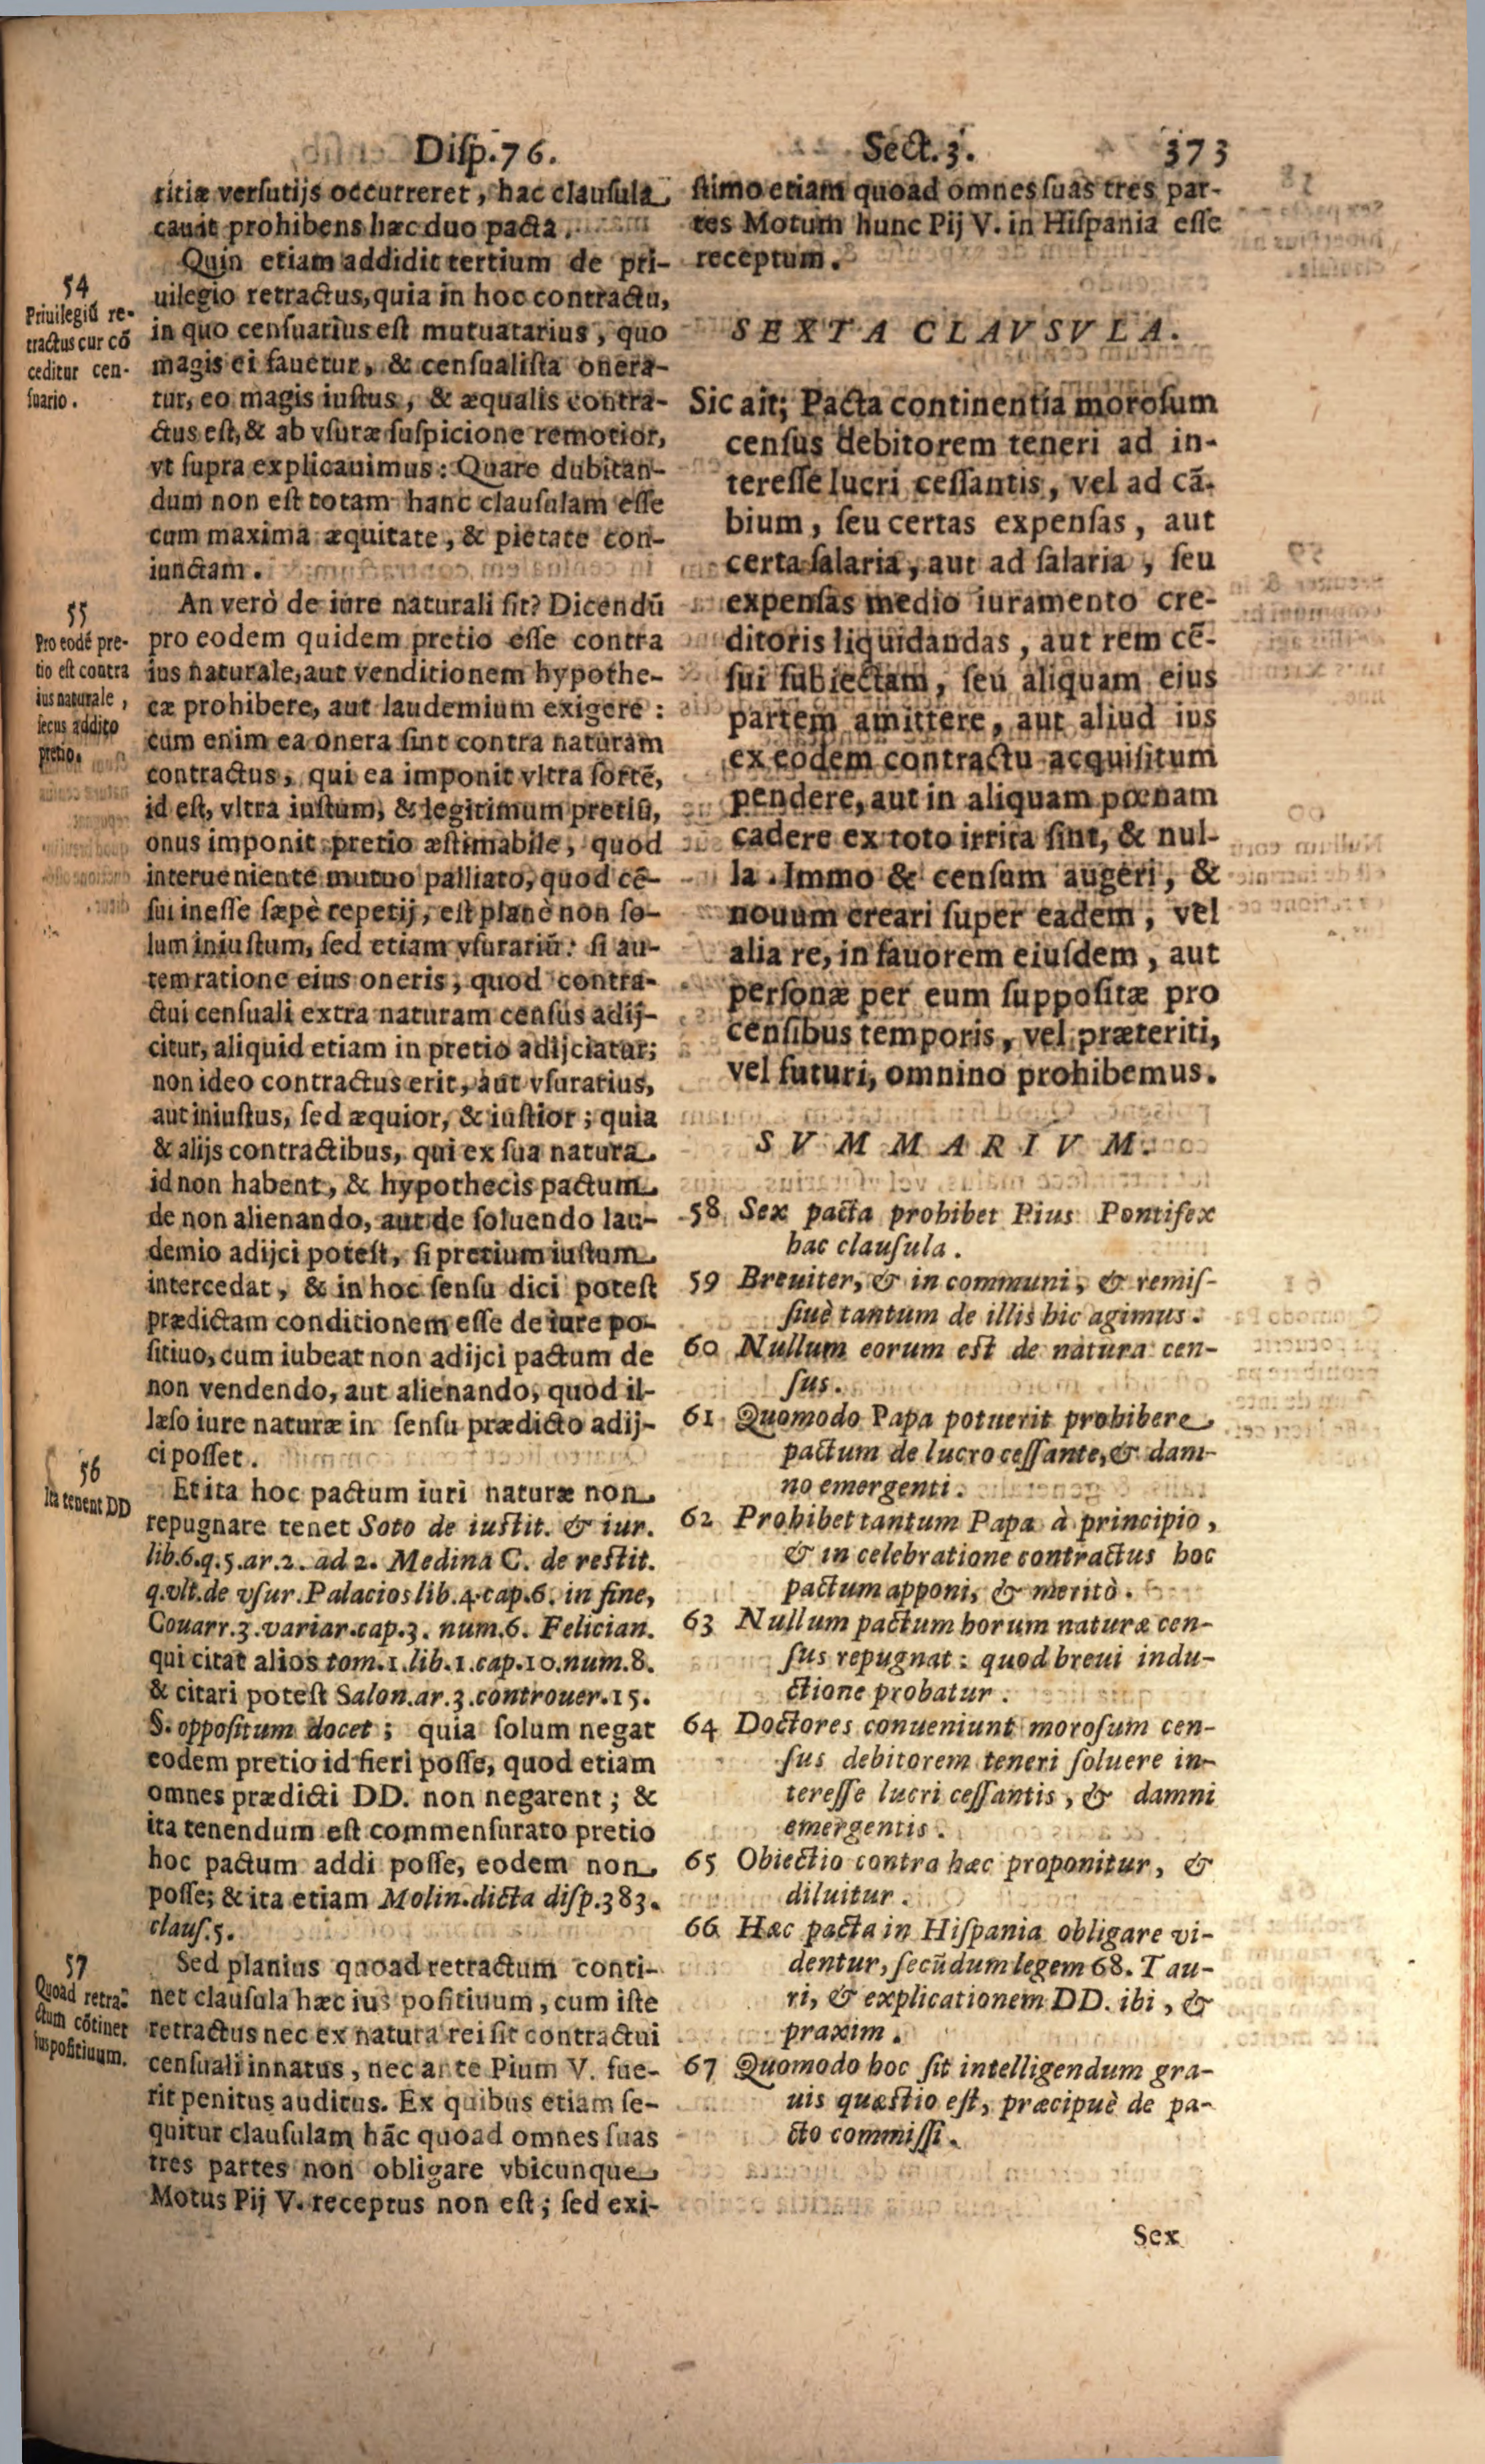 Diſp.76.
Sect.3.
373
titiæ verſutijs occurreret, hac clauſula
cauit prohibens hæc duo pacta.
Quin etiam addidit tertium de pri-
54
Priuilegiũ re-
tractus cur cõ
ceditur cen-
ſuario.
uilegio retractus, quia in hoc contractu,
in quo cenſuarius eſt mutuatarius, quo
magis ei fauetur, & cenſualiſta onera-
tur, eo magis iuſtus, & æqualis contra-
ctus eſt, & ab vſuræ ſuſpicione remotior,
vt ſupra explicauimus: Quare dubitan-
dum non eſt totam hanc clauſulam eſſe
cum maxima æquitate, & pietate con-
iunctam.
55
Pro eodẽ pre-
tio eſt contra
ius naturale,
ſecus addito
pretio.
An verò de iure naturali ſit? Dicendũ
pro eodem quidem pretio eſſe contra
ius naturale, aut venditionem hypothe-
cæ prohibere, aut laudemium exigere:
cùm enim ea onera ſint contra naturam
contractus, qui ea imponit vltra ſortẽ,
id eſt, vltra iuſtum, & legitimum pretiũ,
onus imponit pretio æſtimabile, quod
interueniente mutuo palliato, quod cẽ-
ſui ineſſe ſæpè repetij, eſt planè non ſo-
lum iniuſtum, ſed etiam vſurariũ: ſi au-
tem ratione eius oneris, quod contra-
ctui cenſuali extra naturam cenſus adij-
citur, aliquid etiam in pretio adijciatur;
non ideo contractus erit, aut vſurarius,
aut iniuſtus, ſed æquior, & iuſtior; quia
& alijs contractibus, qui ex ſua natura
id non habent, & hypothecis pactum
de non alienando, aut de ſoluendo lau-
demio adijci poteſt, ſi pretium iuſtum
intercedat, & in hoc ſenſu dici poteſt
prædictam conditionem eſſe de iure po-
ſitiuo, cum iubeat non adijci pactum de
non vendendo, aut alienando, quod il-
læſo iure naturæ in ſenſu prædicto adij-
ci poſſet.
56
Ita tenent DD
Et ita hoc pactum iuri naturæ non
repugnare tenet Soto de iuſtit. & iur.
lib.6.q.5.ar.2. ad 2. Medina C. de reſtit.
q.vlt.de vſur. Palacios lib.4.cap.6. in fine,
Couarr.3.variar.cap.3. num.6. Felician.
qui citat alios tom.1.lib.1.cap.10.num.8.
& citari poteſt Salon.ar.3.controuer.15.
§. oppoſitum docet; quia ſolum negat
eodem pretio id fieri poſſe, quod etiam
omnes prædicti DD. non negarent; &
ita tenendum eſt commenſurato pretio
hoc pactum addi poſſe, eodem non
poſſe; & ita etiam Molin.dicta diſp.383.
clauſ.5.
57
Quoad retra-
ctum cõtinet
ius poſitiuum.
Sed planius quoad retractum conti-
net clauſula hæc ius poſitiuum, cum iſte
retractus nec ex natura rei ſit contractui
cenſuali innatus, nec ante Pium V. fue-
rit penitus auditus. Ex quibus etiam ſe-
quitur clauſulam hãc quoad omnes ſuas
tres partes non obligare vbicunque
Motus Pij V. receptus non eſt; ſed exi-
ſtimo etiam quoad omnes ſuas tres par-
tes Motum hunc Pij V. in Hiſpania eſſe
receptum.
SEXTA CLAVSVLA.
Sic ait; Pacta continentia moroſum
cenſus debitorem teneri ad in-
tereſſe lucri ceſſantis, vel ad cã-
bium, ſeu certas expenſas, aut
certa ſalaria, aut ad ſalaria, ſeu
expenſas medio iuramento cre-
ditoris liquidandas, aut rem cẽ-
ſui ſubiectam, ſeu aliquam eius
partem amittere, aut aliud ius
ex eodem contractu acquiſitum
pendere, aut in aliquam pœnam
cadere ex toto irrita ſint, & nul-
la. Immo & cenſum augeri, &
nouum creari ſuper eadem, vel
alia re, in fauorem eiuſdem, aut
perſonæ per eum ſuppoſitæ pro
cenſibus temporis, vel præteriti,
vel futuri, omnino prohibemus.
SVMMARIVM.
58 Sex pacta prohibet Pius Pontifex
hac clauſula.
59 Breuiter, & in communi, & remiſ-
ſiuè tantum de illis hic agimus.
60 Nullum eorum eſt de natura cen-
ſus.
61 Quomodo Papa potuerit prohibere
pactum de lucro ceſſante, & dam-
no emergenti.
62 Prohibet tantum Papa à principio,
& in celebratione contractus hoc
pactum apponi, & meritò.
63 Nullum pactum horum naturæ cen-
ſus repugnat: quod breui indu-
ctione probatur.
64 Doctores conueniunt moroſum cen-
ſus debitorem teneri ſoluere in-
tereſſe lucri ceſſantis, & damni
emergentis.
65 Obiectio contra hæc proponitur, &
diluitur.
66 Hæc pacta in Hiſpania obligare vi-
dentur, ſecũdum legem 68. Tau-
ri, & explicationem DD. ibi, &
praxim.
67 Quomodo hoc ſit intelligendum gra-
uis quæſtio eſt, præcipuè de pa-
cto commiſſi.
Sex